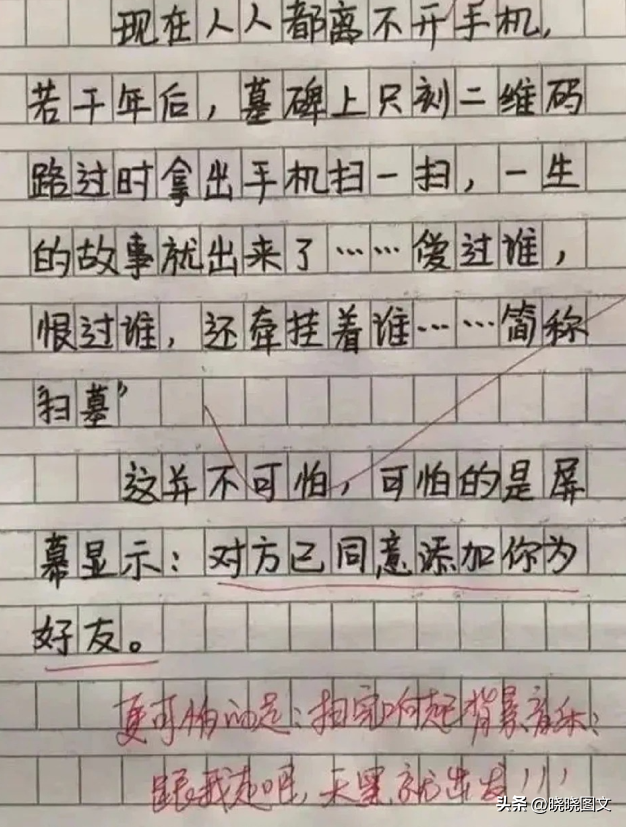 现在人人都离不开手机,
若干年后,墓碑上只刻二维码
路过时拿出手机扫一扫,一生
的故事就出来了……爱过谁,
恨过谁,还牵挂着谁……简称
扫墓"
这并不可怕,可怕的是屏
幕显示:对方已同意添加你为
好友。
更可怕的是:扫完响起背景音乐:
跟我走吧,天黑就出发!!!
头条 @晓晓图文